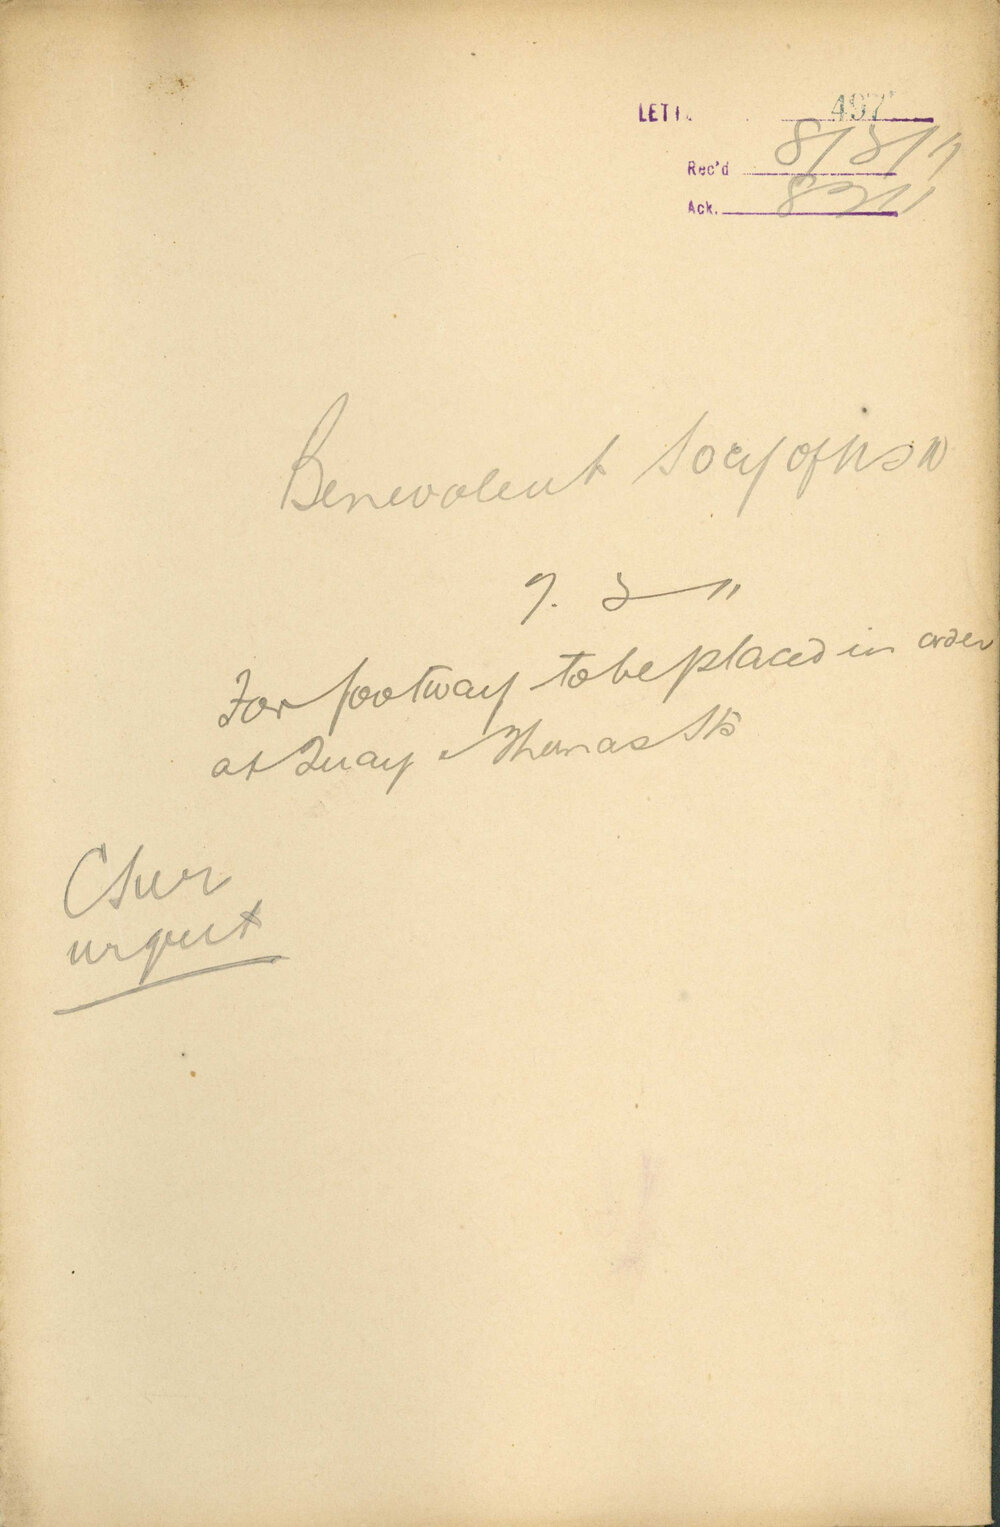 LETT. 497
Rec'd 8/3/11
Ack. 8 3 11
Benevolent Socy of NSW
7. 3 — 11
For footway to be placed in order
at Quay & Thomas Sts
CSuer
urgent